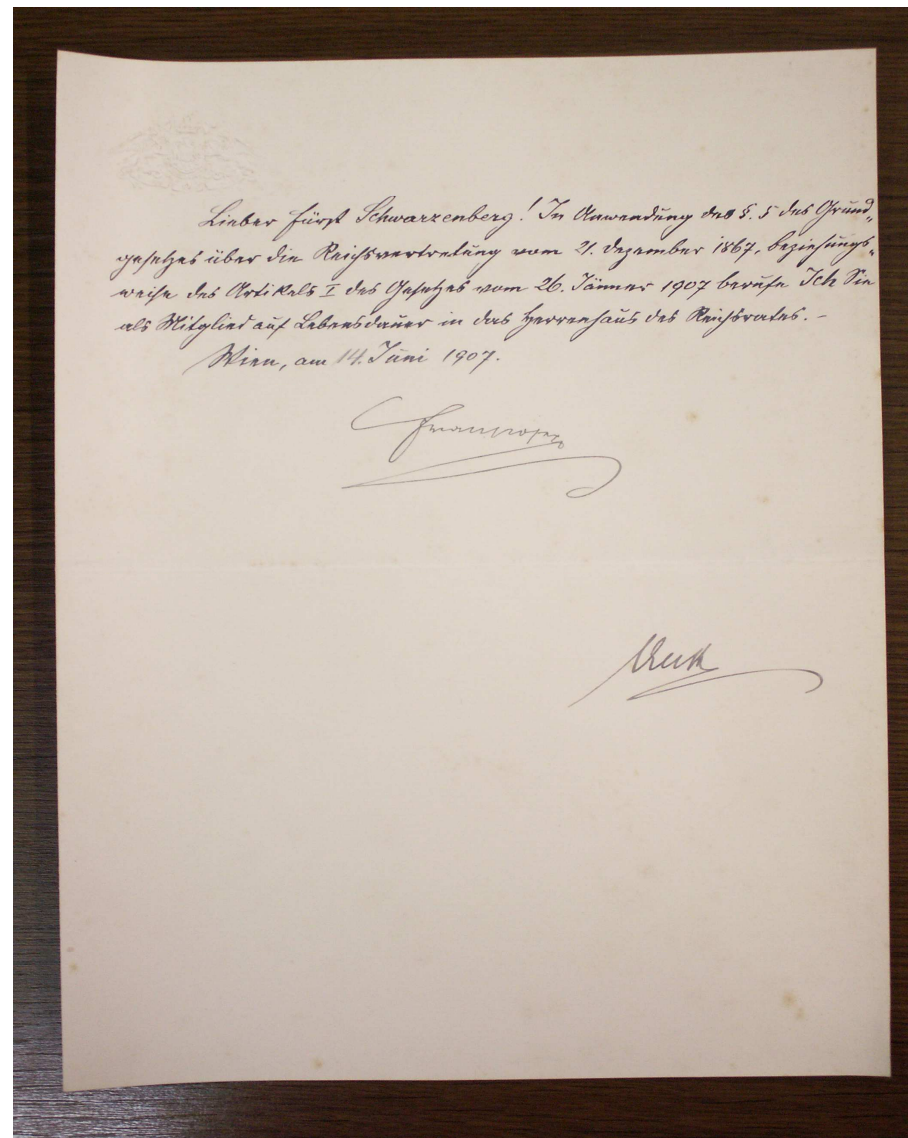 Lieber Fürst Schwarzenberg! In Anwendung des §. 5 des Grund„
gesetzes über die Reichsvertretung vom 21. Dezember 1867, beziehungs„
weise des Artikels I des Gesetzes vom 26. Jänner 1907 berufe Ich Sie
als Mitglied auf Lebensdauer in das Herrenhaus des Reichsrates. –
Wien, am 14. Juni 1907.
Franz Joseph
Beck